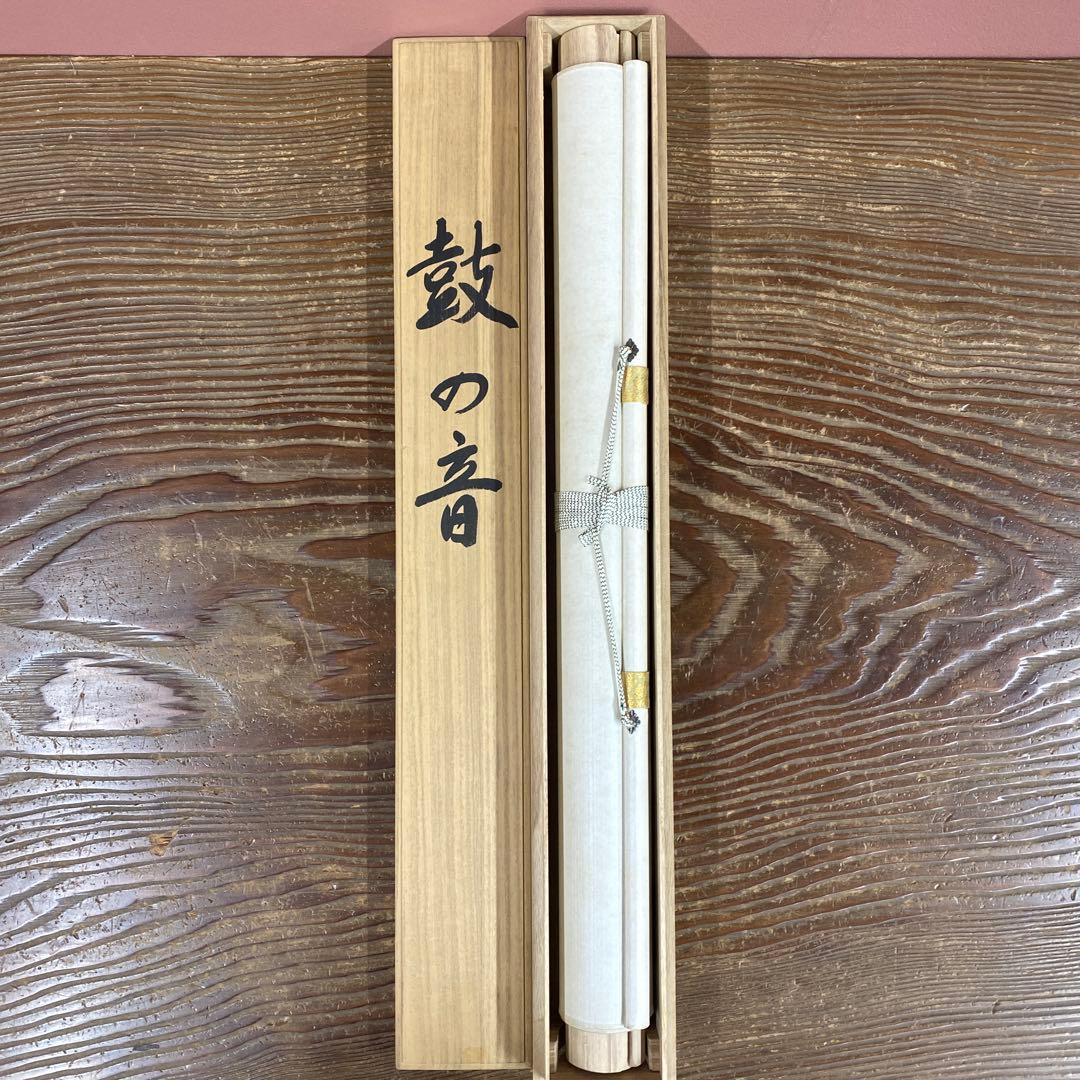 鼓の音